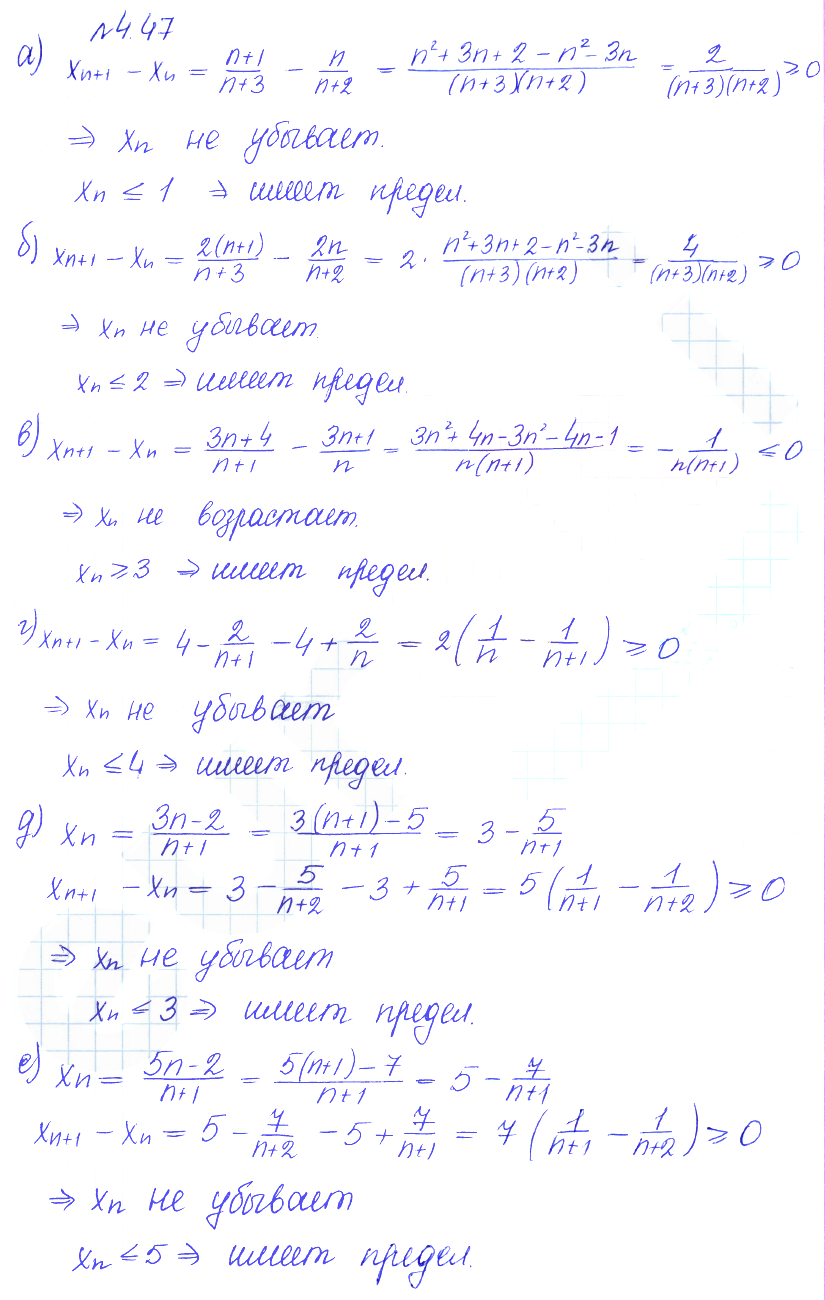 №4.47
а) xₙ₊₁ − xₙ = (n+1)/(n+3) − n/(n+2) = (n²+3n+2−n²−3n)/((n+3)(n+2)) = 2/((n+3)(n+2)) ⩾ 0
⇒ xₙ не убывает.
xₙ ≤ 1 ⇒ имеет предел.
б) xₙ₊₁ − xₙ = 2(n+1)/(n+3) − 2n/(n+2) = 2 · (n²+3n+2−n²−3n)/((n+3)(n+2)) = 4/((n+3)(n+2)) ⩾ 0
⇒ xₙ не убывает.
xₙ ≤ 2 ⇒ имеет предел.
в) xₙ₊₁ − xₙ = (3n+4)/(n+1) − (3n+1)/n = (3n²+4n−3n²−4n−1)/(n(n+1)) = − 1/(n(n+1)) ≤ 0
⇒ xₙ не возрастает.
xₙ ⩾ 3 ⇒ имеет предел.
г) xₙ₊₁ − xₙ = 4 − 2/(n+1) − 4 + 2/n = 2(1/n − 1/(n+1)) ⩾ 0
⇒ xₙ не убывает
xₙ ≤ 4 ⇒ имеет предел.
д) xₙ = (3n−2)/(n+1) = (3(n+1)−5)/(n+1) = 3 − 5/(n+1)
xₙ₊₁ − xₙ = 3 − 5/(n+2) − 3 + 5/(n+1) = 5(1/(n+1) − 1/(n+2)) ⩾ 0
⇒ xₙ не убывает
xₙ ≤ 3 ⇒ имеет предел.
е) xₙ = (5n−2)/(n+1) = (5(n+1)−7)/(n+1) = 5 − 7/(n+1)
xₙ₊₁ − xₙ = 5 − 7/(n+2) − 5 + 7/(n+1) = 7(1/(n+1) − 1/(n+2)) ⩾ 0
⇒ xₙ не убывает
xₙ ≤ 5 ⇒ имеет предел.